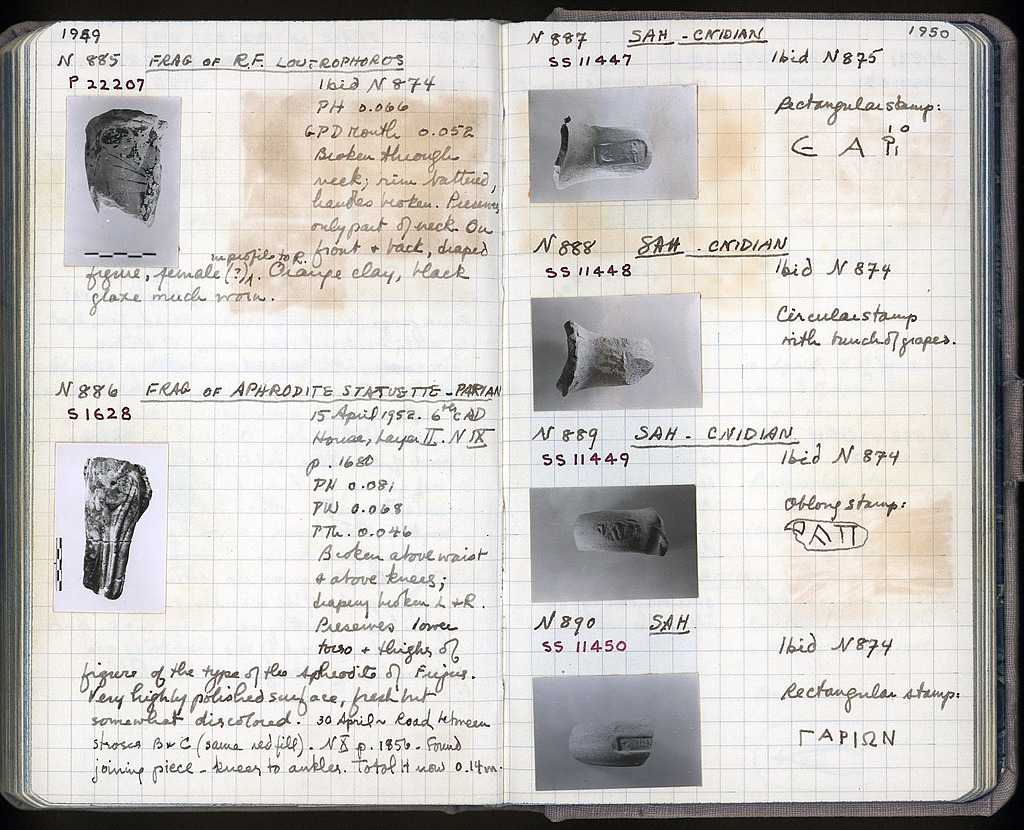 1949
N 885 FRAG OF R.F. LOUTROPHOROS
P 22207
Ibid N 874
PH 0.066
GPD Mouth 0.052
Broken through
neck; rim battered,
handles broken. Preserves
only part of neck. On
front + back, draped
in profile to R.
figure, female (?). Orange clay, black
glaze much worn.
N 886 FRAG OF APHRODITE STATUETTE - PARIAN
S 1628
15 April 1952. 6th c AD
House, Layer II. N IX
p. 1680
PH 0.081
PW 0.068
PTh. 0.046
Broken above waist
+ above knees;
drapery broken L + R.
Preserves lower
torso + thighs of
figure of the type of the Aphrodite of Frejus.
Very highly polished surface, fresh but
somewhat discolored. 30 April Road between
stroses B + C (same red fill). N X p. 1856. Found
joining piece - knees to ankles. Total H now 0.14 m.
1950
N 887 SAH - CNIDIAN
SS 11447
Ibid N 875
Rectangular stamp:
N 888 SAH - CNIDIAN
SS 11448
Ibid N 874
Circular stamp
with bunch of grapes.
N 889 SAH - CNIDIAN
SS 11449
Ibid N 874
Oblong stamp:
N 890 SAH
SS 11450
Ibid N 874
Rectangular stamp:
ΓΑΡΙΩΝ